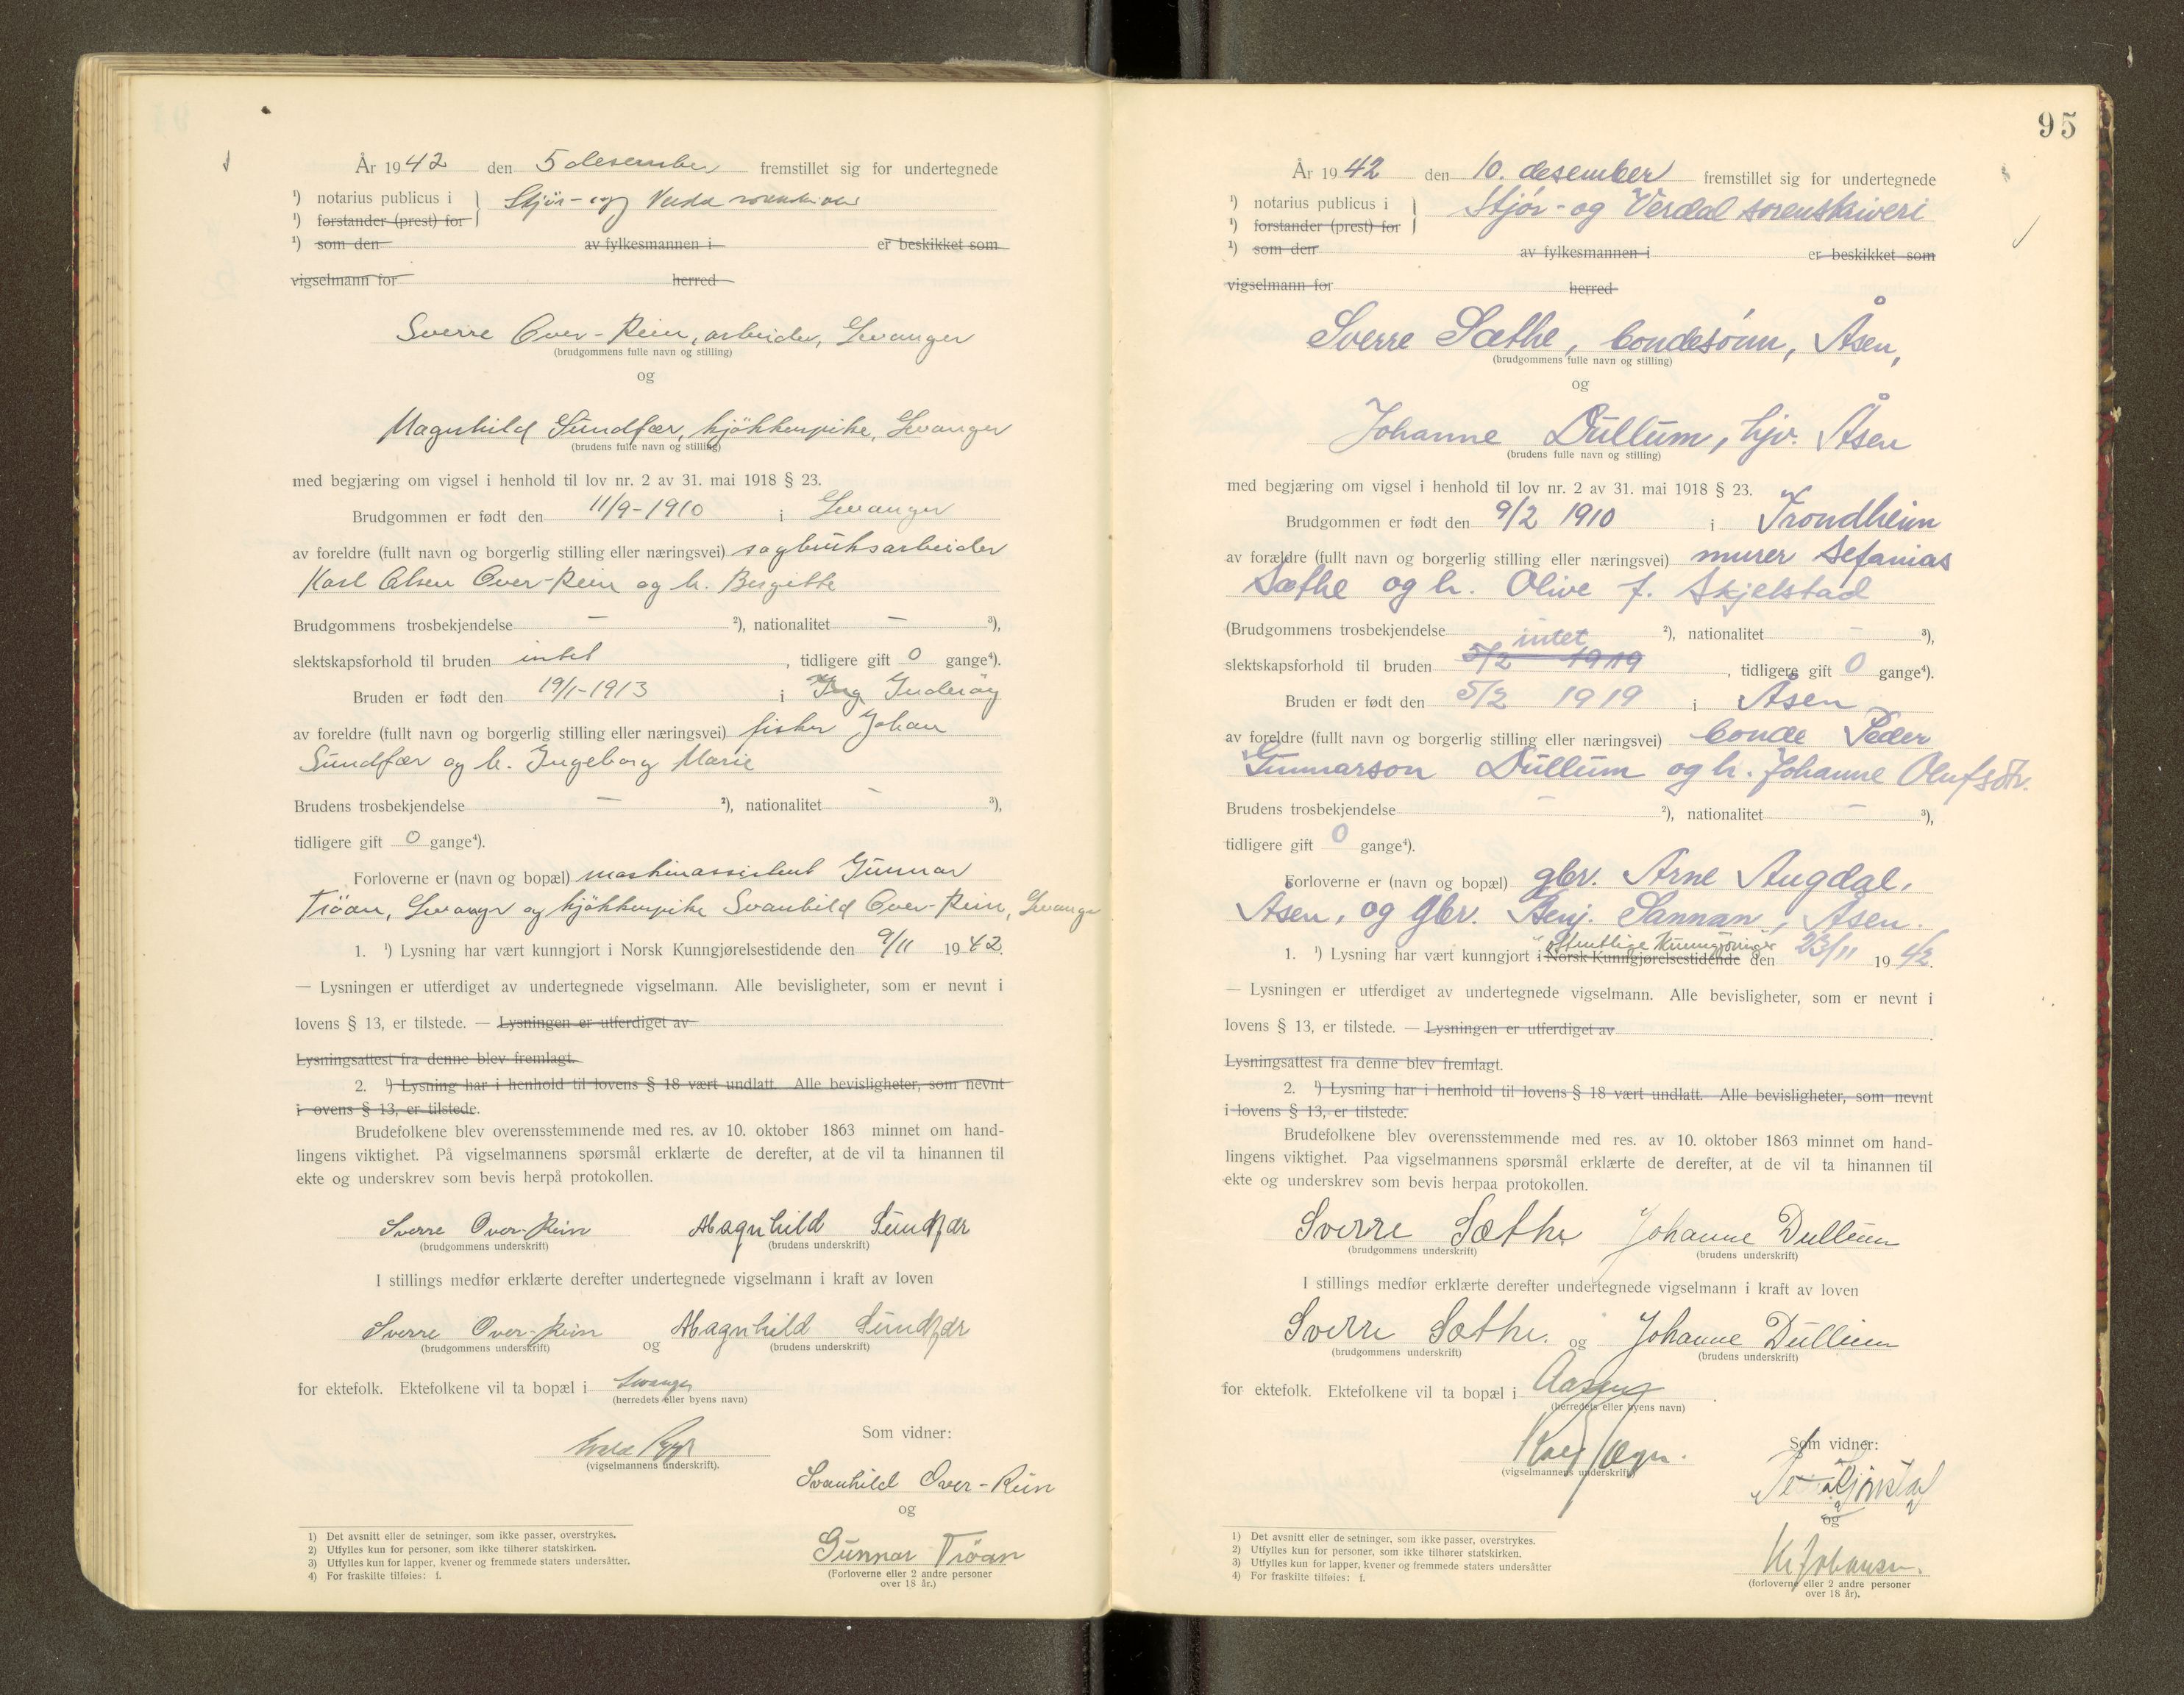 År 1942 den 5 desember fremstillet sig for undertegnede
¹) notarius publicus i } Stjør- og Verdal sorenskriveri
¹) forstander (prest) for
¹) som den av fylkesmannen i er beskikket som
vigselmann for herred
Sverre Over-Rein, arbeider, Levanger
(brudgommens fulle navn og stilling)
og
Magnhild Sundfær, kjøkkenpike, Levanger
(brudens fulle navn og stilling)
med begjæring om vigsel i henhold til lov nr. 2 av 31. mai 1918 § 23.
Brudgommen er født den 11/9-1910 i Levanger
av foreldre (fullt navn og borgerlig stilling eller næringsvei) sagbruksarbeider
Karl Olsen Over-Rein og h. Bergitte
Brudgommens trosbekjendelse — ²), nationalitet — ³),
slektskapsforhold til bruden intet , tidligere gift 0 gange⁴).
Bruden er født den 19/1-1913 i Inderøy
av foreldre (fullt navn og borgerlig stilling eller næringsvei) fisker Johan
Sundfær og h. Ingeborg Marie
Brudens trosbekjendelse — ²), nationalitet — ³),
tidligere gift 0 gange⁴).
Forloverne er (navn og bopæl) maskinassistent Gunnar
Trøan, Levanger og kjøkkenpike Svanhild Over-Rein, Levanger
1. ¹) Lysning har vært kunngjort i Norsk Kunngjørelsestidende den 9/11 1942.
— Lysningen er utferdiget av undertegnede vigselmann. Alle bevisligheter, som er nevnt i
lovens § 13, er tilstede. — Lysningen er utferdiget av
Lysningsattest fra denne blev fremlagt.
2. ¹) Lysning har i henhold til lovens § 18 vært undlatt. Alle bevisligheter, som nevnt
i ovens § 13, er tilstede.
Brudefolkene blev overensstemmende med res. av 10. oktober 1863 minnet om hand-
lingens viktighet. På vigselmannens spørsmål erklærte de derefter, at de vil ta hinannen til
ekte og underskrev som bevis herpå protokollen.
Sverre Over-Rein Magnhild Sundfær
(brudgommens underskrift) (brudens underskrift)
I stillings medfør erklærte derefter undertegnede vigselmann i kraft av loven
Sverre Over-Rein og Magnhild Sundfær
(brudgommens underskrift) (brudens underskrift)
for ektefolk. Ektefolkene vil ta bopæl i Levanger
(herredets eller byens navn)
Som vidner:
(vigselmannens underskrift).
Svanhild Over-Rein
og
Gunnar Trøan
(Forloverne eller 2 andre personer
over 18 år.)
1) Det avsnitt eller de setninger, som ikke passer, overstrykes.
2) Utfylles kun for personer, som ikke tilhører statskirken.
3) Utfylles kun for lapper, kvener og fremmede staters undersåtter.
4) For fraskilte tilføies: f.
95
År 1942 den 10. desember fremstillet sig for undertegnede
¹) notarius publicus i } Stjør- og Verdal sorenskriveri
¹) forstander (prest) for
¹) som den av fylkesmannen i er beskikket som
vigselmann for herred
Sverre Sæthe, bondesønn, Åsen,
(brudgommens fulle navn og stilling)
og
Johanne Dullum, hjv. Åsen
(brudens fulle navn og stilling)
med begjæring om vigsel i henhold til lov nr. 2 av 31. mai 1918 § 23.
Brudgommen er født den 9/2 1910 i Trondheim
av forældre (fullt navn og borgerlig stilling eller næringsvei) murer Sefanias
Sæthe og h. Olive f. Skjelstad
(Brudgommens trosbekjendelse ²), nationalitet — ³),
intet
slektskapsforhold til bruden 5/2 1919 , tidligere gift 0 gange⁴).
Bruden er født den 5/2 1919 i Åsen
av foreldre (fullt navn og borgerlig stilling eller næringsvei) bonde Peder
Gunnarson Dullum og h. Johanne Olufsdtr.
Brudens trosbekjendelse — ²), nationalitet — ³),
tidligere gift 0 gange⁴).
Forloverne er (navn og bopæl) gbr. Arne Augdal,
Åsen, og gbr. Benj. Sannan, Åsen.
offentlige Kunngjøringer
1. ¹) Lysning har vært kunngjort i Norsk Kunngjørelsestidende den 23/11 1942.
— Lysningen er utferdiget av undertegnede vigselmann. Alle bevisligheter, som er nevnt i
lovens § 13, er tilstede. — Lysningen er utferdiget av
Lysningsattest fra denne blev fremlagt.
2. ¹) Lysning har i henhold til lovens § 18 vært undlatt. Alle bevisligheter, som nevnt
i lovens § 13, er tilstede.
Brudefolkene blev overensstemmende med res. av 10. oktober 1863 minnet om hand-
lingens viktighet. Paa vigselmannens spørsmål erklærte de derefter, at de vil ta hinannen til
ekte og underskrev som bevis herpaa protokollen.
Sverre Sæthe Johanne Dullum
(brudgommens underskrift) (brudens underskrift)
I stillings medfør erklærte derefter undertegnede vigselmann i kraft av loven
Sverre Sæthe. og Johanne Dullum
(brudgommens underskrift) (brudens underskrift)
for ektefolk. Ektefolkene vil ta bopæl i Aasen
(herredets eller byens navn)
Som vidner:
(vigselmannens underskrift)
og
Kr Johansen.
(forloverne eller 2 andre personer
over 18 år).
1) Det avsnitt eller de setninger, som ikke passer, overstrykes.
2) Utfylles kun for personer, som ikke tilhører statskirken.
3) Utfylles kun for lapper, kvener og fremmede staters undersåtter
4) For fraskilte tilføies: f.